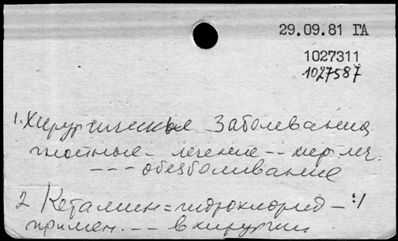 29.09.81 ГА
1027311
1027587
1. Хирургическые заболевания
гностные - лечение -- хир. леч.
--- обезболивание
2. Кетамин = гидрохлорид - :1
примен. --- в хирургии